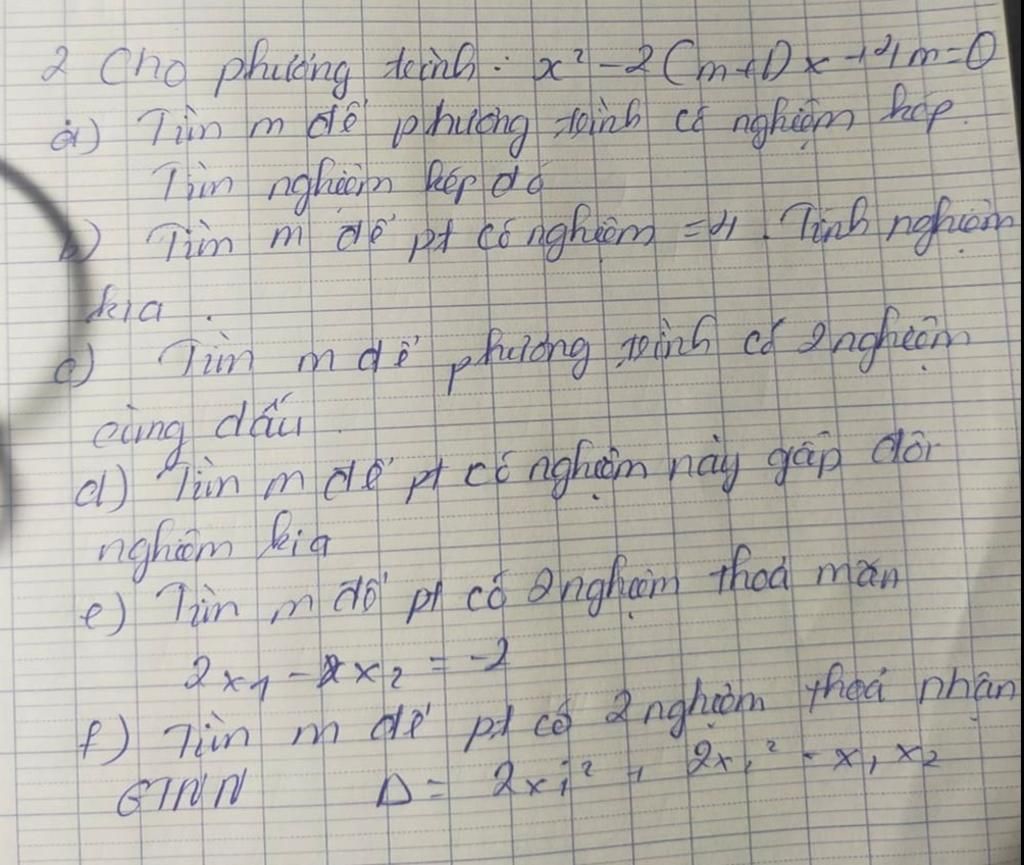 2 Cho phương trình: x² - 2(m+1)x + 4m = 0
a) Tìm m để phương trình có nghiệm kép.
Tìm nghiệm kép đó
b) Tìm m để pt có nghiệm = 4. Tính nghiệm
kia.
c) Tìm m để phương trình có 2 nghiệm
cùng dấu
d) Tìm m để pt có nghiệm này gấp đôi
nghiệm kia
e) Tìm m để pt có 2 nghiệm thoả mãn
2x₁ - x₂ = -2
f) Tìm m để pt có 2 nghiệm thoả nhận
GTNN A = 2x₁² + 2x₂² - x₁x₂